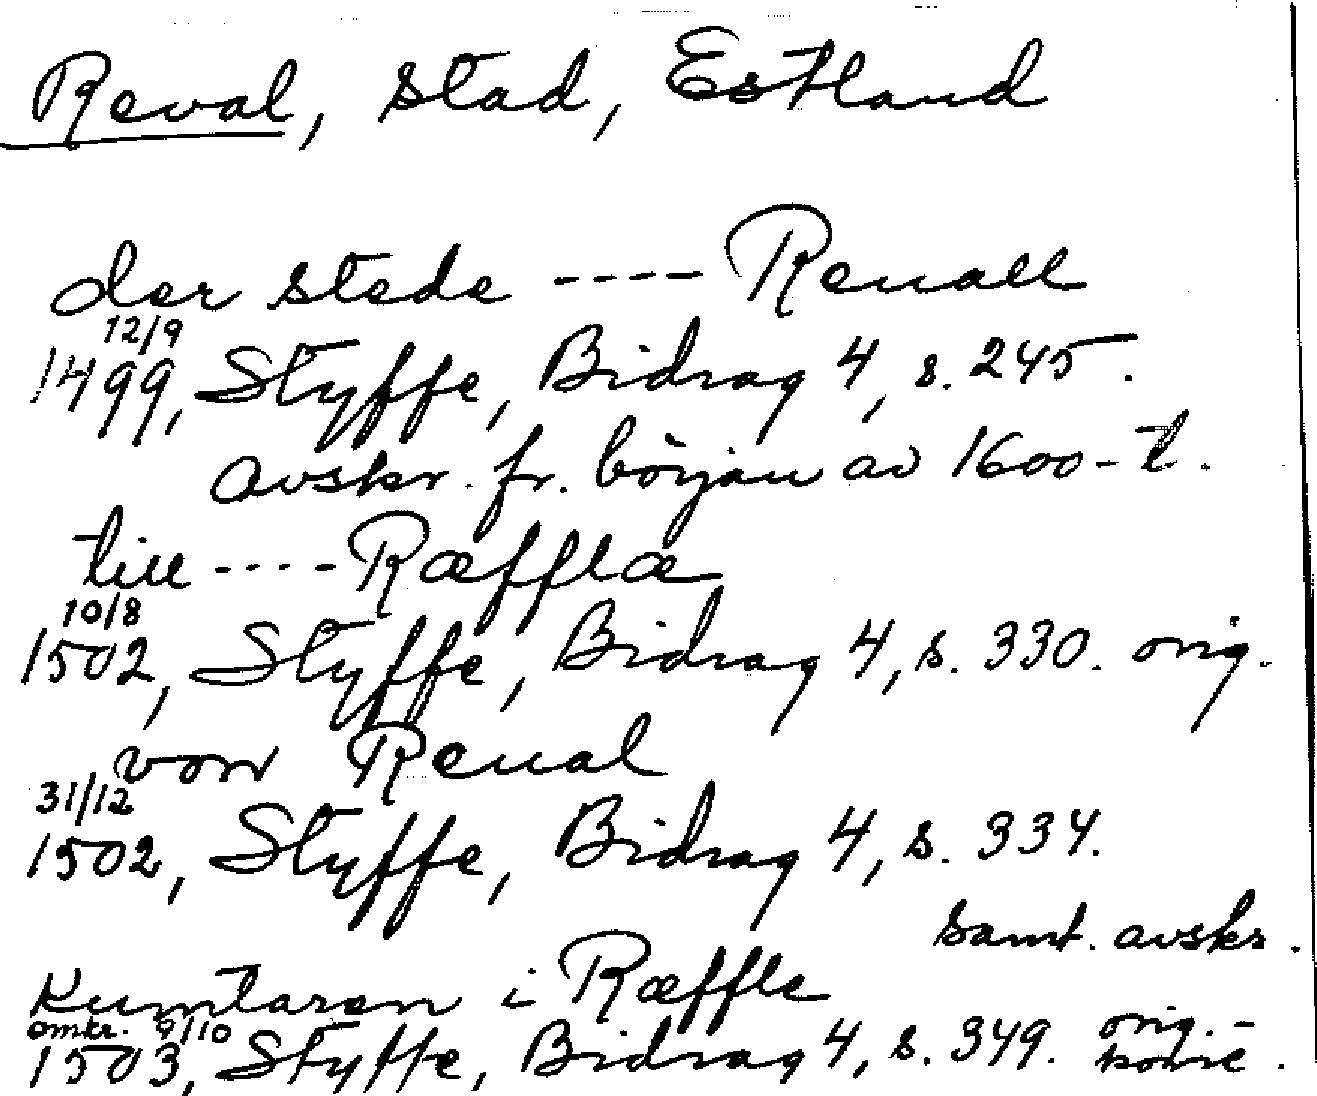 Reval, stad, Estland
der stede ---- Reuall
12/9
1499, Styffe, Bidrag 4, s. 245.
avskr. fr. början av 1600-t.
till ---- Ræfflæ
10/8
1502, Styffe, Bidrag 4, s. 330. orig.
von Reual
31/12
1502, Styffe, Bidrag 4, s. 334.
samt. avskr.
Kumtaren i Ræffle
omkr. 9/10
1503, Styffe, Bidrag 4, s. 349. orig.-
konc.